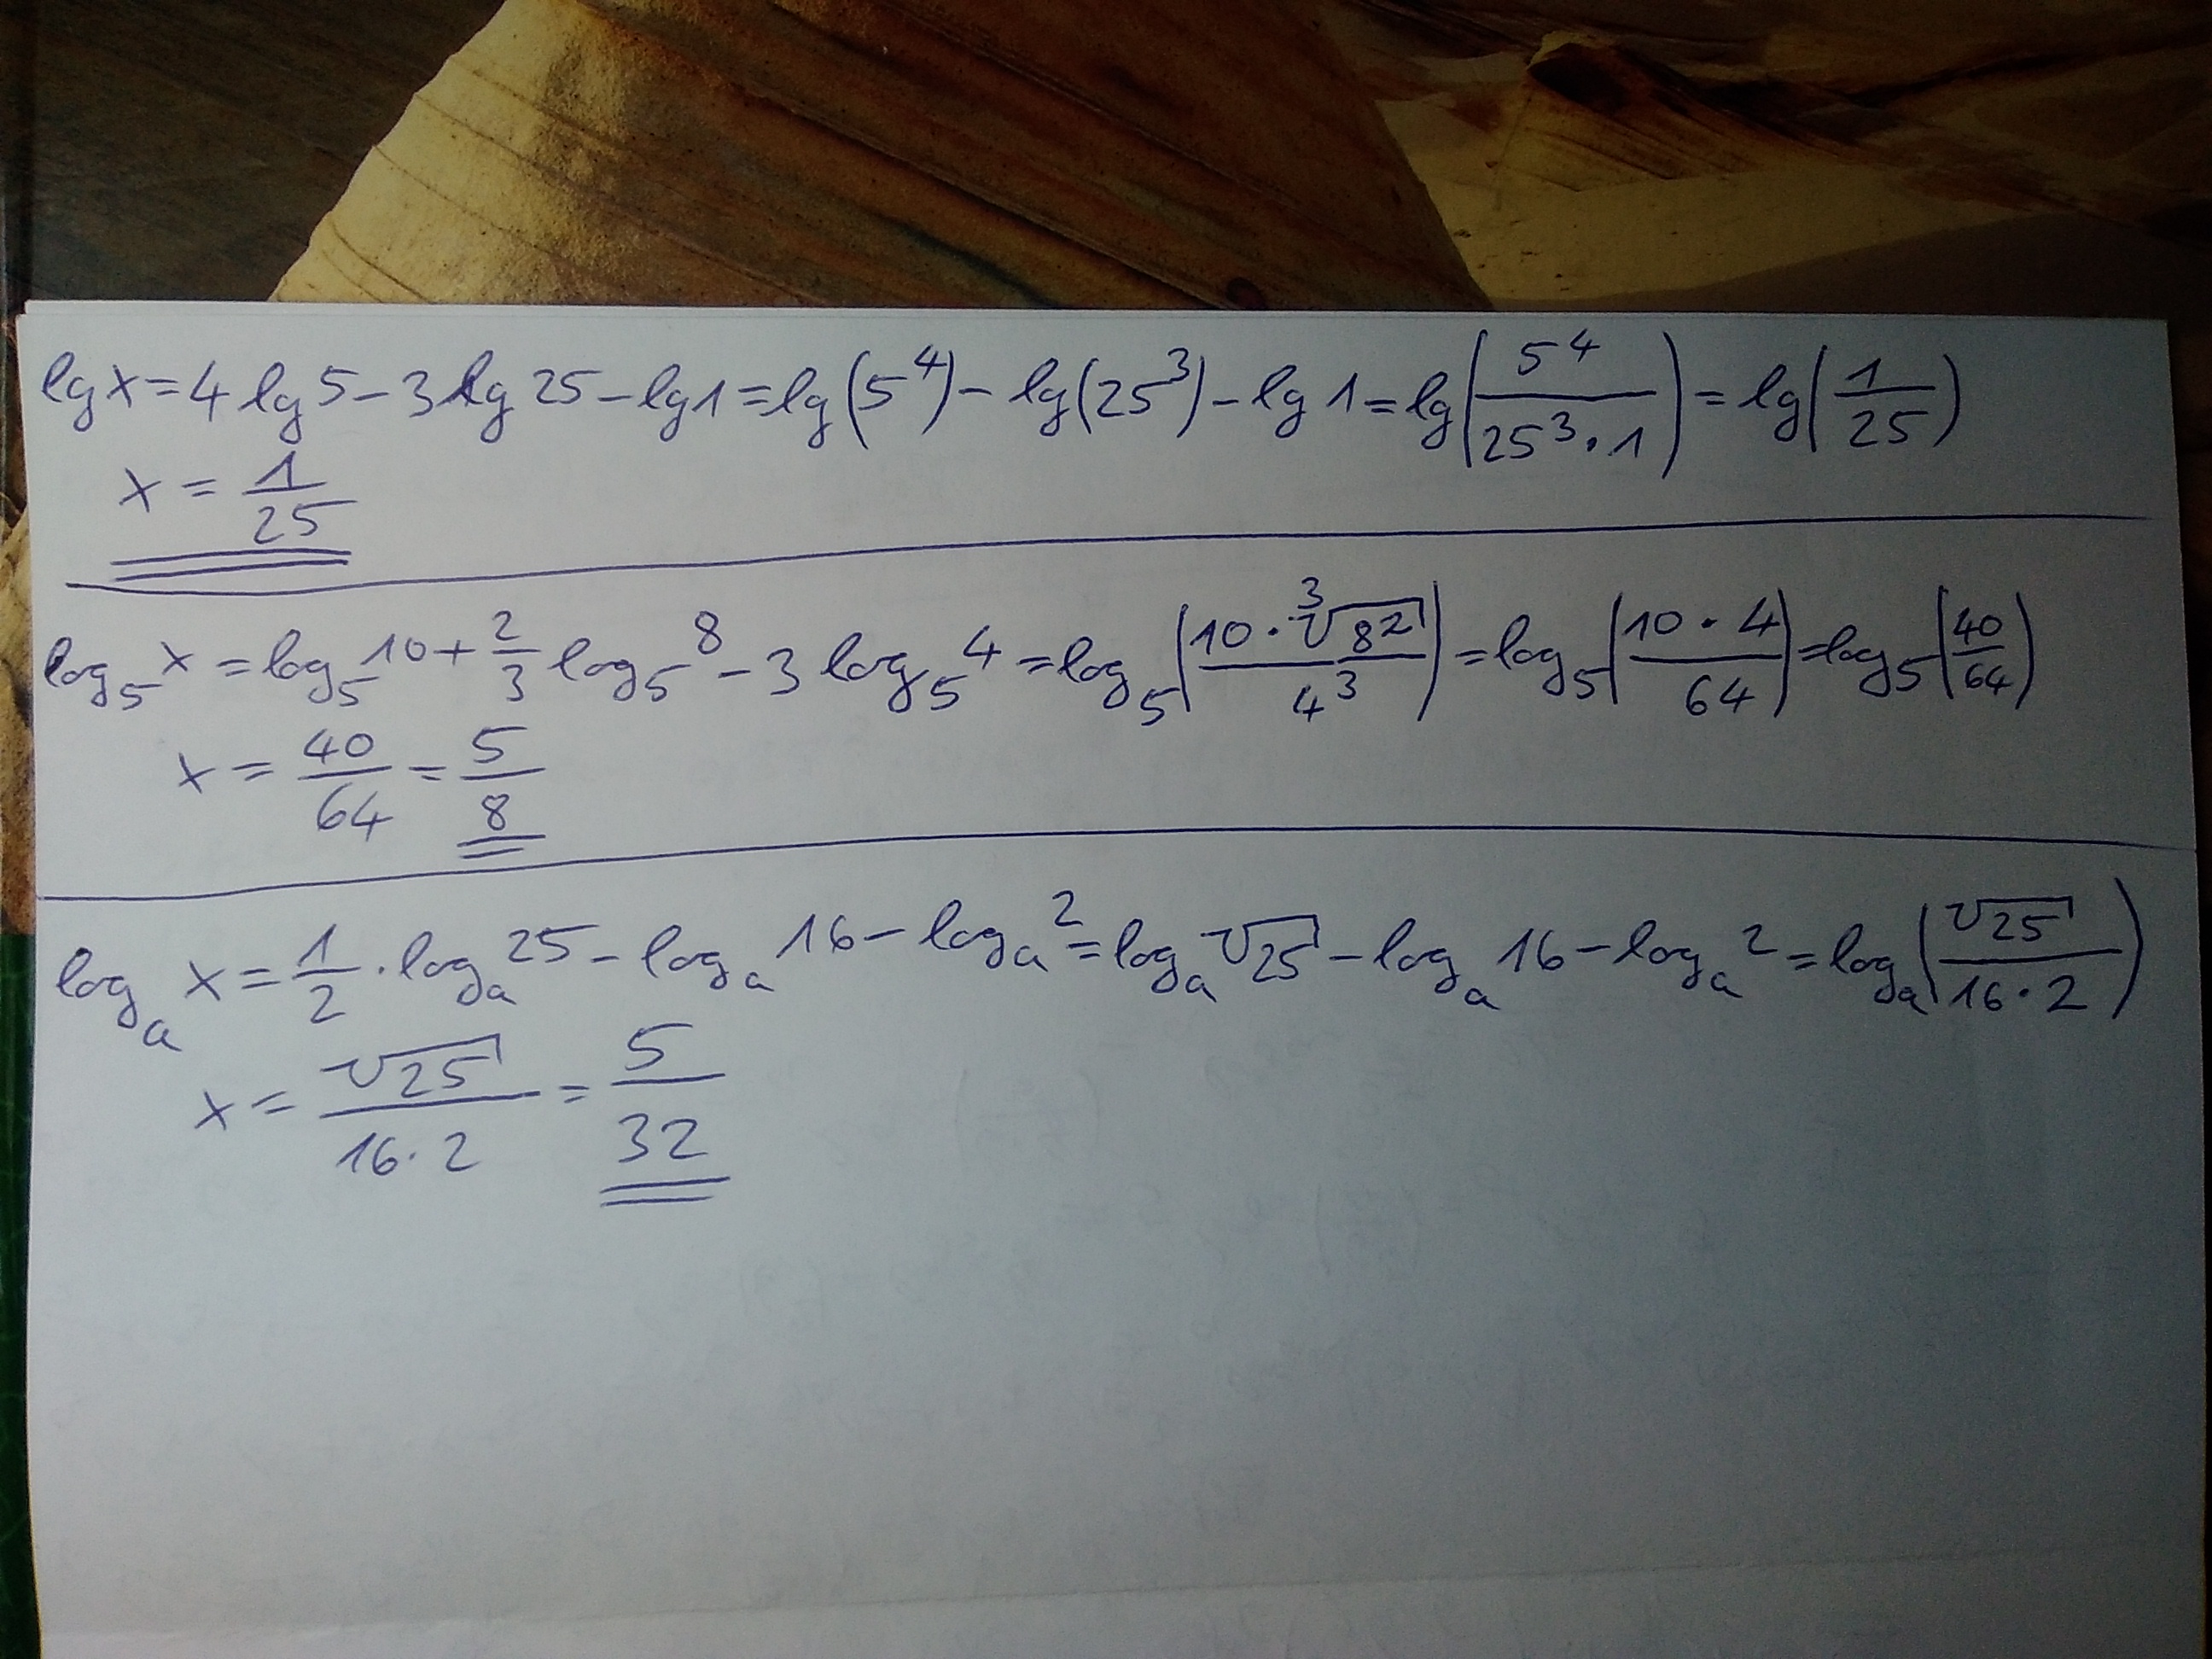 lg x = 4 lg 5 − 3 lg 25 − lg 1 = lg(5⁴) − lg(25³) − lg 1 = lg(5⁴/(25³·1)) = lg(1/25)
x = 1/25
log₅ x = log₅ 10 + 2/3 log₅ 8 − 3 log₅ 4 = log₅((10·∛(8²))/4³) = log₅((10·4)/64) = log₅(40/64)
x = 40/64 = 5/8
logₐ x = 1/2 · logₐ 25 − logₐ 16 − logₐ 2 = logₐ √25 − logₐ 16 − logₐ 2 = logₐ(√25/(16·2))
x = √25/(16·2) = 5/32